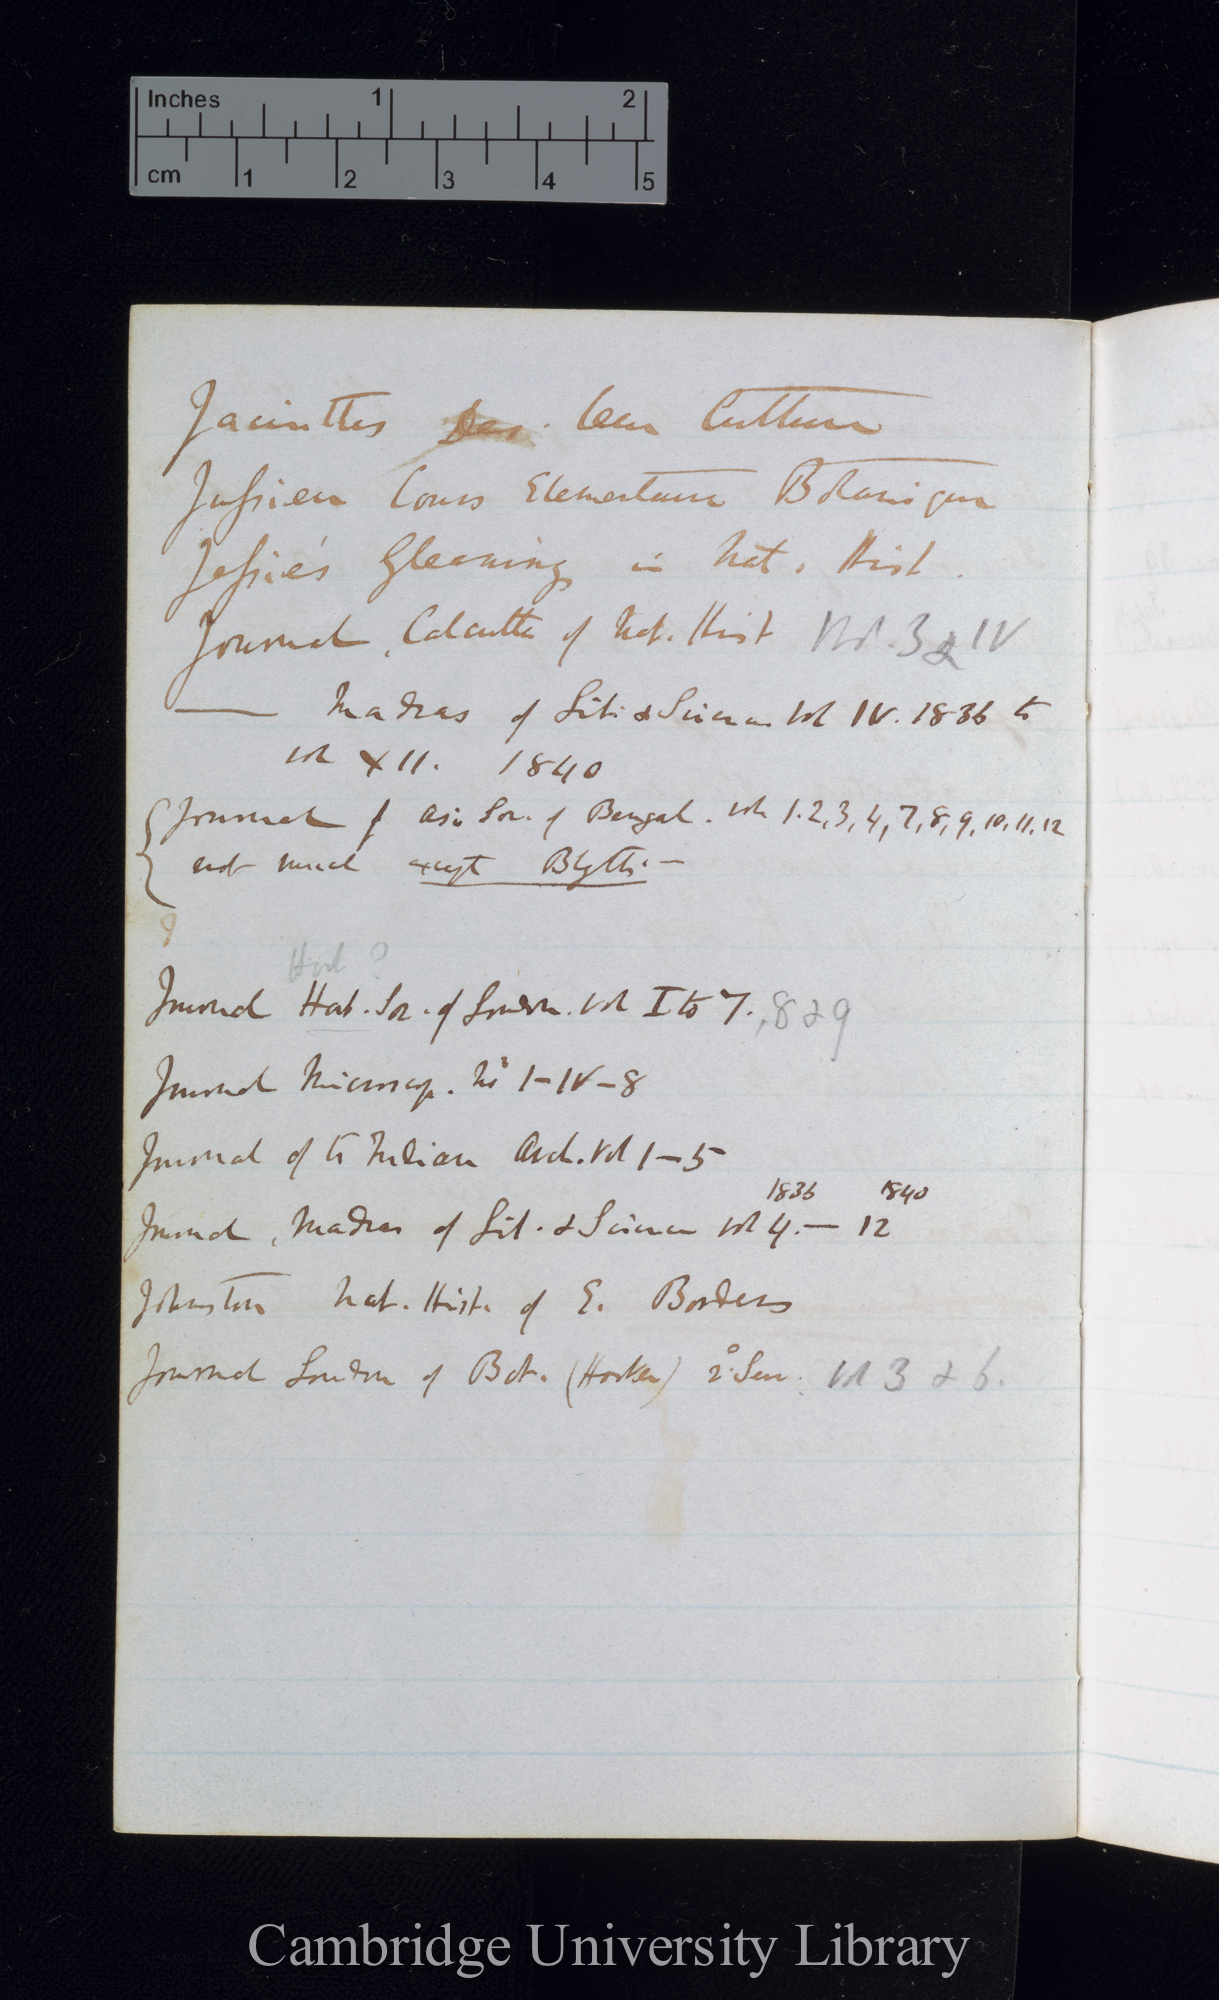 Inches 1 2
cm 1 2 3 4 5
Jacinthes Des. leur Culture
Jussieu Cours Elementaire Botanique
Jesse's Gleanings in Nat. Hist.
Journal, Calcutta of Nat. Hist Vol. 3 & IV
—— Madras of Lit. & Science Vol IV. 1836 to
vol XII. 1840
Journal of Asi. Soc. of Bengal. vol. 1.2,3,4,7,8,9,10,11,12
not much except Blyth.—
Hort ?
Journal Hort. Soc. of London. vol I to 7.,8 & 9
Journal Microscop. No 1–IV–8
Journal of the Indian Arch. Vol 1–5
1836 1840
Journal, Madras of Lit. & Science vol 4.— 12
Johnston Nat. Hist. of E. Borders
Journal London of Bot. (Hooker) 2d. Ser. vol 3 & 6.
Cambridge University Library